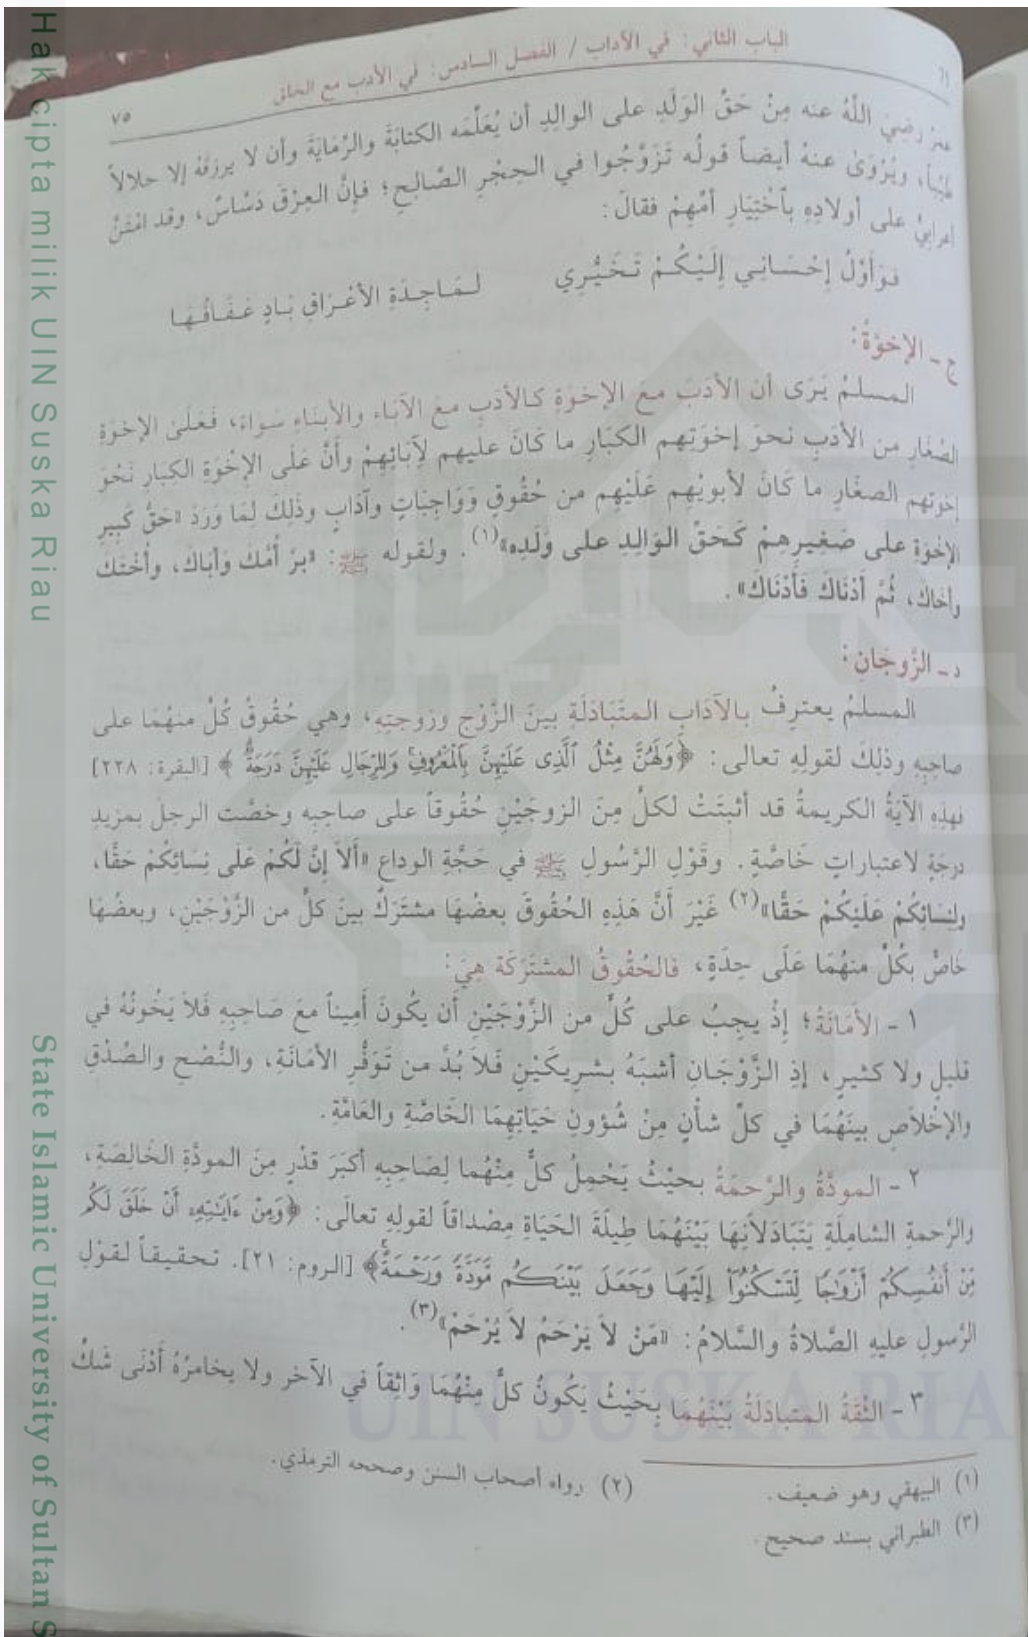 الباب الثاني: في الآداب / الفصل السادس: في الأدب مع الخلق
٧٥
عمرُ رضِيَ اللَّهُ عنه مِنْ حَقِّ الوَلَدِ على الوالِدِ أن يُعَلِّمَه الكتابَةَ والرِّمَايَةَ وأن لا يرزقَهُ إلا حلالاً
طيِّباً، ويُرْوَىٰ عنهُ أيضاً قولُه تَزَوَّجُوا في الحِجْرِ الصَّالِحِ؛ فإنَّ العِرْقَ دَسَّاسٌ، وقد امْتَنَّ
أعرابيٌّ على أولادِهِ بٱخْتِيَارِ أمِّهِمْ فقالَ:
فَوَأَوَّلُ إِحْسَانِي إِلَيْكُمْ تَخَيُّرِي لِمَاجِدَةِ الأعْرَاقِ بَادٍ عَفَافُهَا
ج - الإخوَّةُ:
المسلمُ يَرَى أن الأدَبَ معَ الإخوَةِ كالأدَبِ معَ الآبَاءِ والأبنَاءِ سَواءً، فَعَلَىٰ الإخوَةِ
الصِّغَارِ من الأدَبِ نحوَ إخوَتِهِم الكبَارِ ما كَانَ عليهم لِآبَائِهِمْ وأَنَّ عَلَى الإخْوَةِ الكبارِ نَحْوَ
إخوتهم الصغَارِ ما كَانَ لأبويْهِم عَلَيْهِم من حُقُوقٍ وَوَاجِبَاتٍ وآدَابٍ وذَلِكَ لمَا وَرَدَ «حَقُّ كَبِيرِ
الإخْوَةِ على صَغيرِهمْ كَحَقِّ الوَالِدِ على وَلَدِه»(١). ولقوله ﷺ: «بِرَّ أُمَّكَ وَأبَاكَ، وأُخْتَكَ
وأخَاكَ، ثُمَّ أدْنَاكَ فَأَدْنَاكَ».
د - الزَّوجَانِ:
المسلمُ يعترِفُ بالآدَابِ المتَبَادَلَةِ بينَ الزَّوْجِ وزوجتِهِ، وهي حُقُوقُ كُلٍّ منهُمَا على
صاحِبِهِ وذلِكَ لقولِهِ تعالى: ﴿وَلَهُنَّ مِثْلُ ٱلَّذِى عَلَيْهِنَّ بِٱلْمَعْرُوفِ وَلِلرِّجَالِ عَلَيْهِنَّ دَرَجَةٌ﴾ [البقرة: ٢٢٨]
فهذِهِ الآيَةُ الكريمةُ قد أثبتَتْ لكلٍّ مِنَ الزوجَيْنِ حُقُوقاً على صاحبِه وخصَّت الرجلَ بمزيدِ
درجَةٍ لاعتباراتٍ خَاصَّةٍ. وقَوْلِ الرَّسُولِ ﷺ في حَجَّةِ الوداعِ «ألاَ إنَّ لَكُمْ عَلَى نِسَائِكُمْ حَقًّا،
ولِنِسَائِكُمْ عَلَيْكُمْ حَقًّا»(٢) غَيْرَ أنَّ هَذِهِ الحُقُوقَ بعضُهَا مشتَرَكٌ بينَ كلٍّ من الزَّوْجَيْنِ، وبعضُهَا
خَاصٌّ بكُلٍّ منهُمَا عَلَى حِدَةٍ، فالحُقُوقُ المشتَرَكَة هِيَ:
١ - الأمَانَةُ؛ إذْ يجِبُ على كُلٍّ من الزَّوْجَيْنِ أن يكُونَ أمِيناً معَ صَاحِبِهِ فَلاَ يَخُونُهُ في
قليلٍ ولا كثيرٍ، إذِ الزَّوْجَانِ أشبَهُ بشرِيكَيْنِ فَلاَ بُدَّ من تَوَفُّرِ الأمَانَةِ، والنُّصْحِ والصِّدْقِ
والإخْلاَصِ بينَهُمَا في كلِّ شأْنٍ مِنْ شُؤونِ حَيَاتِهِمَا الخَاصَّةِ والعَامَّةِ.
٢ - المودَّةُ والرَّحمَةُ بحيْثُ يَحْمِلُ كلٌّ مِنْهُما لِصَاحِبِهِ أكبَرَ قَدْرٍ مِنَ المودَّةِ الخَالِصَةِ،
والرَّحمةِ الشامِلَةِ يَتَبَادَلاَنِهَا بَيْنَهُمَا طِيلَةَ الحَيَاةِ مِصْداقاً لقولِهِ تعالَى: ﴿وَمِنْ ءَايَٰتِهِۦٓ أَنْ خَلَقَ لَكُم
مِّنْ أَنفُسِكُمْ أَزْوَٰجًا لِّتَسْكُنُوٓا۟ إِلَيْهَا وَجَعَلَ بَيْنَكُم مَّوَدَّةً وَرَحْمَةً﴾ [الروم: ٢١]. تحقيقاً لقوْلِ
الرَّسولِ عليهِ الصَّلاةُ والسَّلامُ: «مَنْ لاَ يَرْحَمُ لاَ يُرْحَمُ»(٣).
٣ - الثِّقَةُ المتبادَلَةُ بَيْنَهُمَا بِحَيْثُ يَكُونُ كلٌّ مِنْهُمَا وَاثِقاً في الآخر ولا يخامرُهُ أَدْنَى شَكٍّ
(١) البيهقي وهو ضعيف.
(٢) رواه أصحاب السنن وصححه الترمذي.
(٣) الطبراني بسند صحيح.
Hak cipta milik UIN Suska Riau
State Islamic University of Sultan S
UIN SUSKA RIA